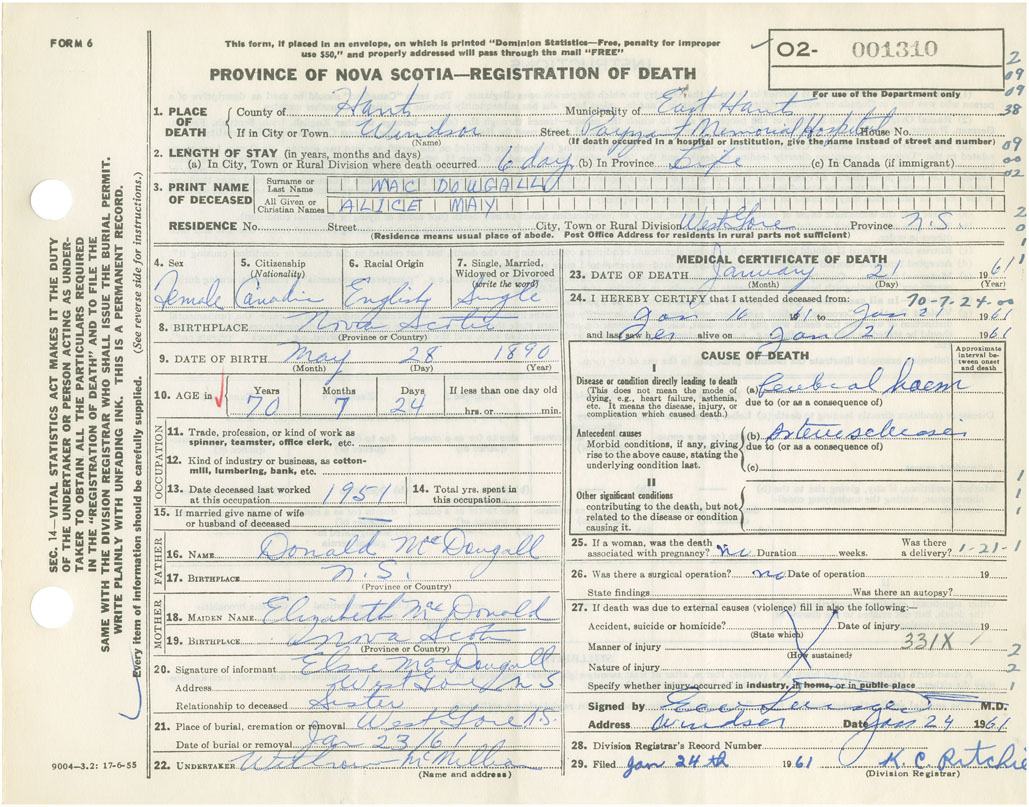 FORM 6
This form, if placed in an envelope, on which is printed "Dominion Statistics—Free, penalty for improper
use $50," and properly addressed will pass through the mail "FREE"
PROVINCE OF NOVA SCOTIA—REGISTRATION OF DEATH
O2- 001310
For use of the Department only
2
09
09
38
09
00
02
2
0
1
1
SEC. 14—VITAL STATISTICS ACT MAKES IT THE DUTY
OF THE UNDERTAKER OR PERSON ACTING AS UNDER-
TAKER TO OBTAIN ALL THE PARTICULARS REQUIRED
IN THE "REGISTRATION OF DEATH" AND TO FILE THE
SAME WITH THE DIVISION REGISTRAR WHO SHALL ISSUE THE BURIAL PERMIT.
WRITE PLAINLY WITH UNFADING INK. THIS IS A PERMANENT RECORD.
Every item of information should be carefully supplied. (See reverse side for instructions.)
1. PLACE OF DEATH
County of Hants Municipality of East Hants
If in City or Town Windsor Street Payzant Memorial Hospital House No.
(Name) (If death occurred in a hospital or institution, give the name instead of street and number)
2. LENGTH OF STAY (in years, months and days)
(a) In City, Town or Rural Division where death occurred 6 day (b) In Province Life (c) in Canada (if immigrant)
3. PRINT NAME OF DECEASED
Surname or Last Name MAC DOUGALL
All Given or Christian Names ALICE MAY
RESIDENCE No. Street City, Town or Rural Division West Gore Province N.S.
(Residence means usual place of abode. Post Office Address for residents in rural parts not sufficient)
4. Sex Female
5. Citizenship (Nationality) Canadian
6. Racial Origin English
7. Single, Married, Widowed or Divorced (write the word) Single
8. BIRTHPLACE Nova Scotia
(Province or Country)
9. DATE OF BIRTH May 28 1890
(Month) (Day) (Year)
10. AGE in Years 70 Months 7 Days 24 If less than one day old hrs. or min.
OCCUPATION
11. Trade, profession, or kind of work as
spinner, teamster, office clerk, etc.
12. Kind of industry or business, as cotton-
mill, lumbering, bank, etc.
13. Date deceased last worked at this occupation 1951
14. Total yrs. spent in this occupation
15. If married give name of wife
or husband of deceased —
FATHER
16. NAME Donald McDougall
17. BIRTHPLACE N.S.
(Province or Country)
MOTHER
18. MAIDEN NAME Elizabeth McDonald
19. BIRTHPLACE Nova Scotia
(Province or Country)
20. Signature of informant Elsie MacDougall
Address West Gore N S
Relationship to deceased Sister
21. Place of burial, cremation or removal West Gore N.S.
Date of burial or removal Jan 23/61
22. UNDERTAKER Withrow McMillan
(Name and address)
9004—3.2: 17-6-55
MEDICAL CERTIFICATE OF DEATH
23. DATE OF DEATH January 21 1961
(Month) (Day) (Year)
24. I HEREBY CERTIFY that I attended deceased from: 70-7-24-00
Jan 16 1961 to Jan 21 1961
and last saw her alive on Jan 21 1961
CAUSE OF DEATH
Approximate interval be-tween onset and death
I
Disease or condition directly leading to death
(This does not mean the mode of
dying, e.g., heart failure, asthenia,
etc. It means the disease, injury, or
complication which caused death.)
(a) Cerebral haem
due to (or as a consequence of)
Antecedent causes
Morbid conditions, if any, giving
rise to the above cause, stating the
underlying condition last.
(b) Arteriosclerosis
due to (or as a consequence of)
(c)
II
Other significant conditions
contributing to the death, but not
related to the disease or condition
causing it.
1
1
1
25. If a woman, was the death
associated with pregnancy? no Duration weeks. Was there a delivery? 1-21-1
26. Was there a surgical operation? no Date of operation 19
State findings Was there an autopsy?
27. If death was due to external causes (violence) fill in also the following:—
Accident, suicide or homicide? Date of injury 19
(State which)
Manner of injury 331X
(How sustained)
Nature of injury
2
2
Specify whether injury occurred in industry, in home, or in public place 1
Signed by M.D.
Address Windsor Date Jan 24 1961
28. Division Registrar's Record Number
29. Filed Jan 24th 1961 K. C. Ritchie
(Division Registrar)